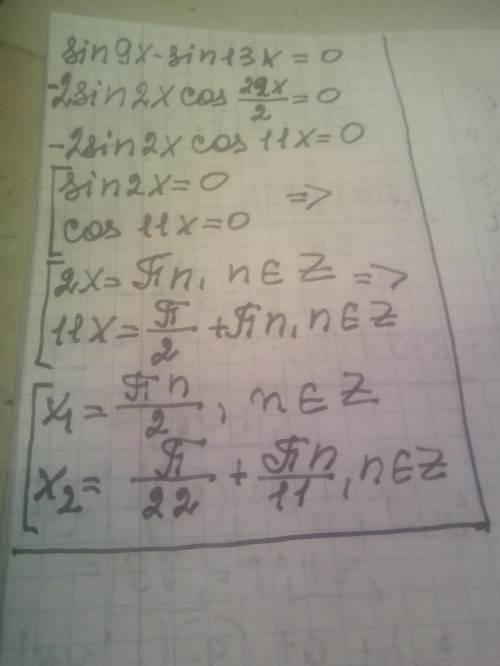 sin9x-sin13x=0
-2sin2x cos 22x/2=0
-2sin2x cos 11x=0
[sin2x=0 =>
cos 11x=0
[2x=πn, n∈Z =>
11x=π/2+πn, n∈Z
[x₁=πn/2, n∈Z
x₂= π/22 + πn/11, n∈Z